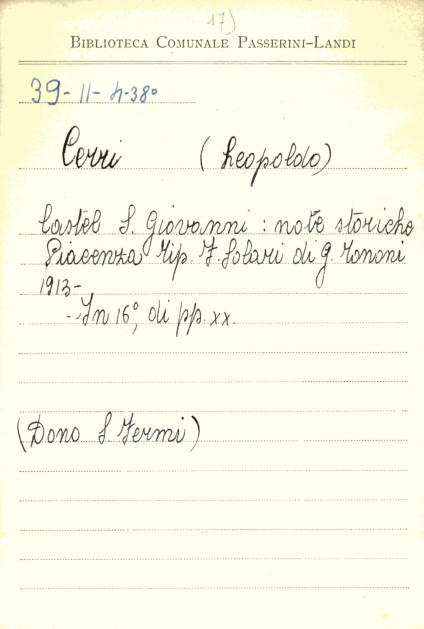 17)
BIBLIOTECA COMUNALE PASSERINI-LANDI
39-11-4-38°
Cerri (Leopoldo)
Castel S. Giovanni : note storiche
Piacenza Tip. F. Solari di G. Tononi
1913-
-. In 16°, di pp. xx.
(Dono S. Fermi)